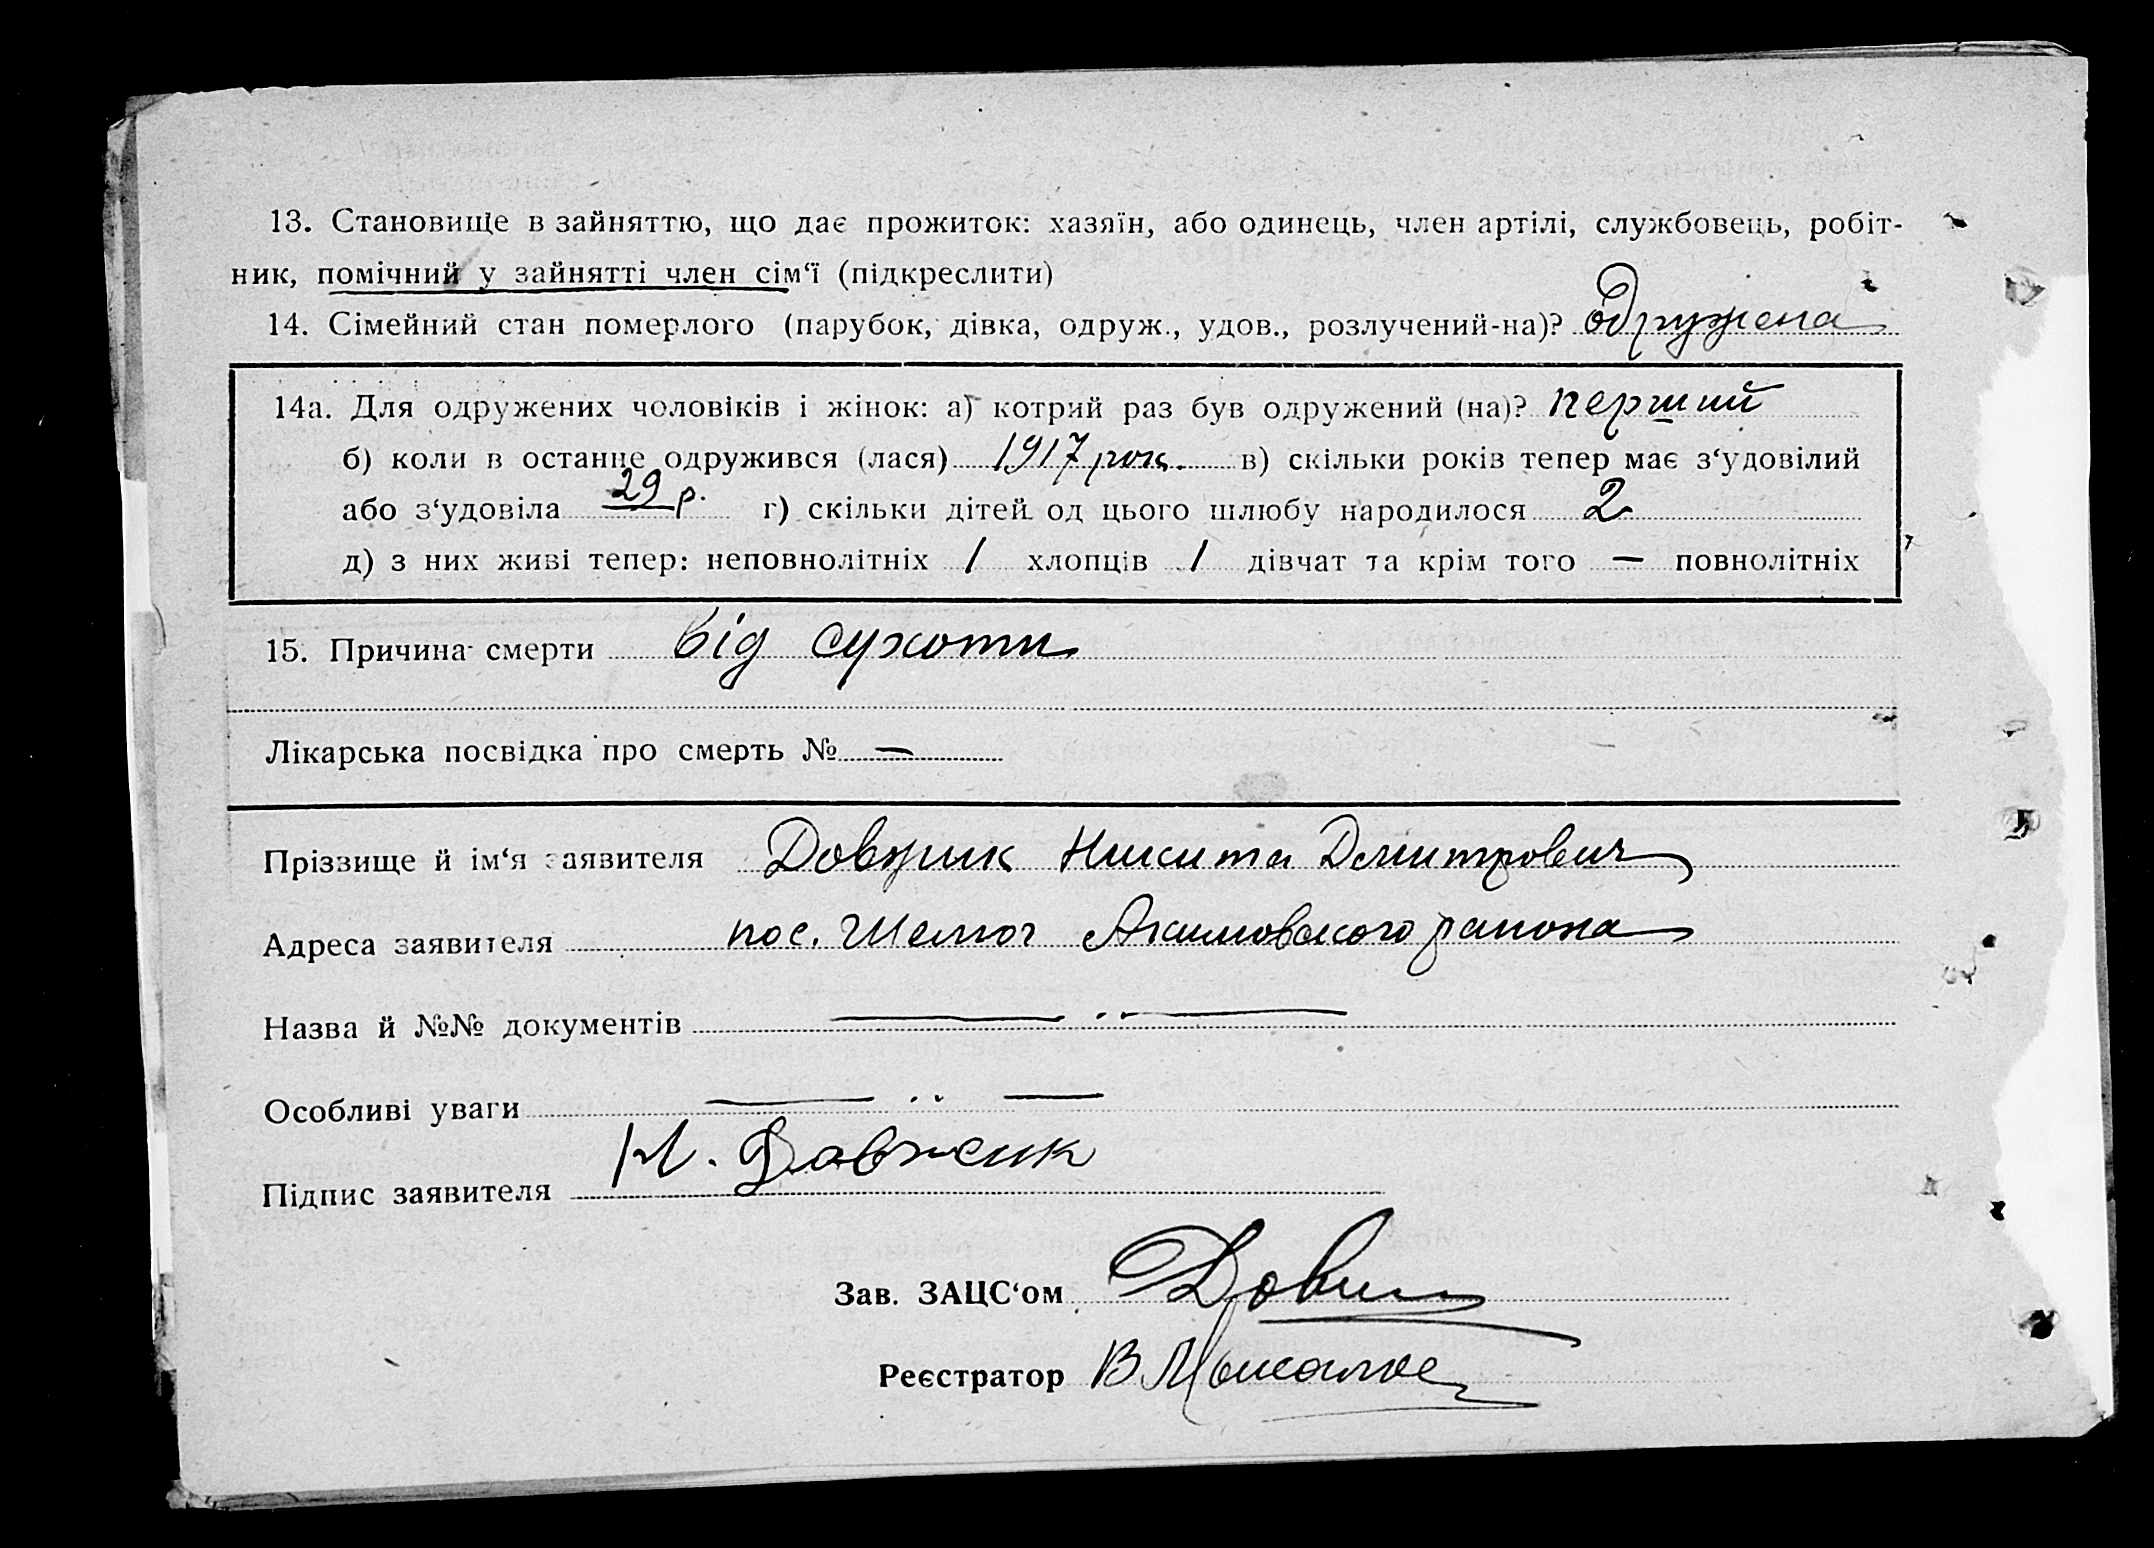 13. Становище в зайняттю, що дає прожиток: хазяїн, або одинець, член артілі, службовець, робіт-
ник, помічний у зайнятті член сім‘ї (підкреслити)
14. Сімейний стан померлого (парубок, дівка, одруж., удов., розлучений-на)? Одружена
14а. Для одружених чоловіків і жінок: а) котрий раз був одружений (на)? перший
б) коли в останнє одружився (лася) 1917 рок. в) скільки років тепер має з‘удовілий
або з‘удовіла 29 р. г) скільки дітей од цього шлюбу народилося 2
д) з них живі тепер: неповнолітніх 1 хлопців 1 дівчат та крім того — повнолітніх
15. Причина смерти від сухоти
Лікарська посвідка про смерть № —
Прізвище й ім‘я заявителя Довжик Никита Дмитрович
Адреса заявителя пос. Шелюг Акимовского района
Назва й №№ документів — " —
Особливі уваги — " —
Підпис заявителя Н. Довженик
Зав. ЗАЦС‘ом
Реєстратор В